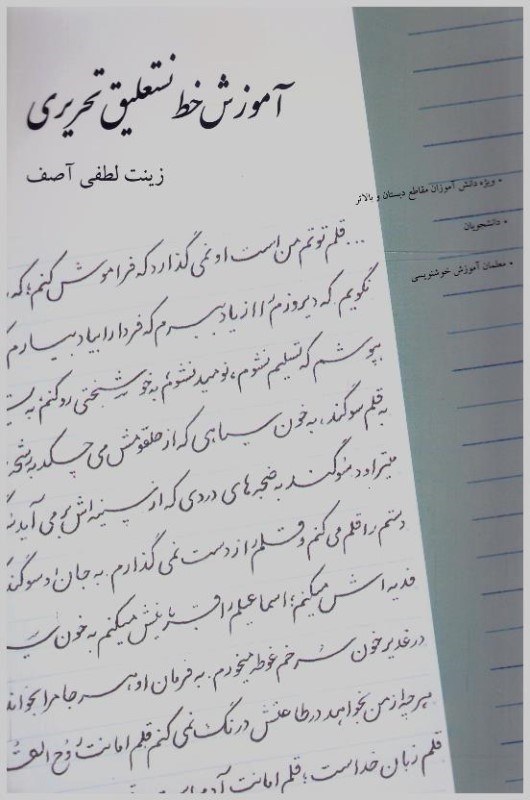 آموزش خط نستعلیق تحریری
زینت لطفی آصف
• ویژه دانش آموزان مقاطع دبستان و بالاتر
• دانشجویان
• معلمان آموزش خوشنویسی
...قلم توتم من است او نمی گذارد که فراموش کنم، که
نگویم. که دیروزم را از یاد ببرم که فردا را بیاد بیارم
بپوشم که تسلیم نشوم، نومید نشوم، به خوشبختی رو کنم، به
به قلم سوگند، به خون سیاهی که از حلقومش می چکد به رشحه
میتراود سوگند به ضجه های دردی که از سینه اش بر می آید
دستم را قلم می کنم و قلم را از دست نمی گذارم. به جان او سوگند
فدیه اش میکنم؛ اسماعیلم را قربانیش میکنم به خون
در غدیر خون سرخم غوطه میخورم. به فرمان او، هر جا مرا بخواند
هر چه از من بخواهد در طاعتش درنگ نمی کنم قلم امانت روح القدس
قلم زبان خداست؛ قلم امانت آدم است